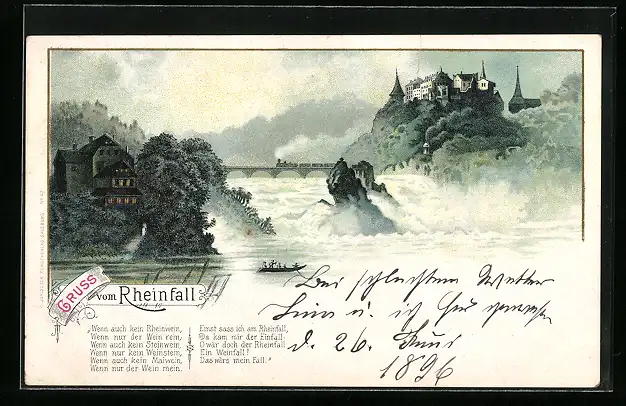 GRUSS
vom Rheinfall
Wenn auch kein Rheinwein,
Wenn nur der Wein rein,
Wenn auch kein Steinwein,
Wenn nur kein Weinstein,
Wenn auch kein Maiwein,
Wenn nur der Wein mein.
Einst sass ich am Rheinfall,
Da kam mir der Einfall:
O wär doch der Rheinfall
Ein Weinfall!
Das wärs mein Fall."
Bei schlechtem Wetter
u. ich hier gewesen
d. 26. Juni
1896